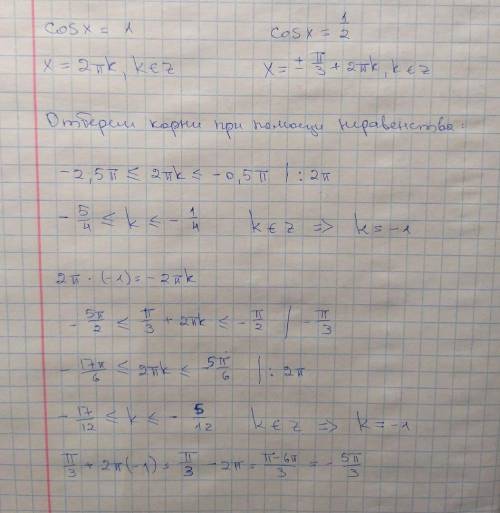 cos x = 1     cos x = 1/2
x = 2πk, k ∈ z     x = ± π/3 + 2πk, k ∈ z
Отберем корни при помощи неравенства:
-2,5π ≤ 2πk ≤ -0,5π | : 2π
- 5/4 ≤ k ≤ - 1/4     k ∈ z => k = -1
2π · (-1) = -2πk
- 5π/2 ≤ π/3 + 2πk ≤ - π/2 | - π/3
- 17π/6 ≤ 2πk ≤ 5π/6 | : 2π
- 17/12 ≤ k ≤ - 5/12     k ∈ z => k = -1
π/3 + 2π(-1) = π/3 - 2π = π-6π/3 = - 5π/3